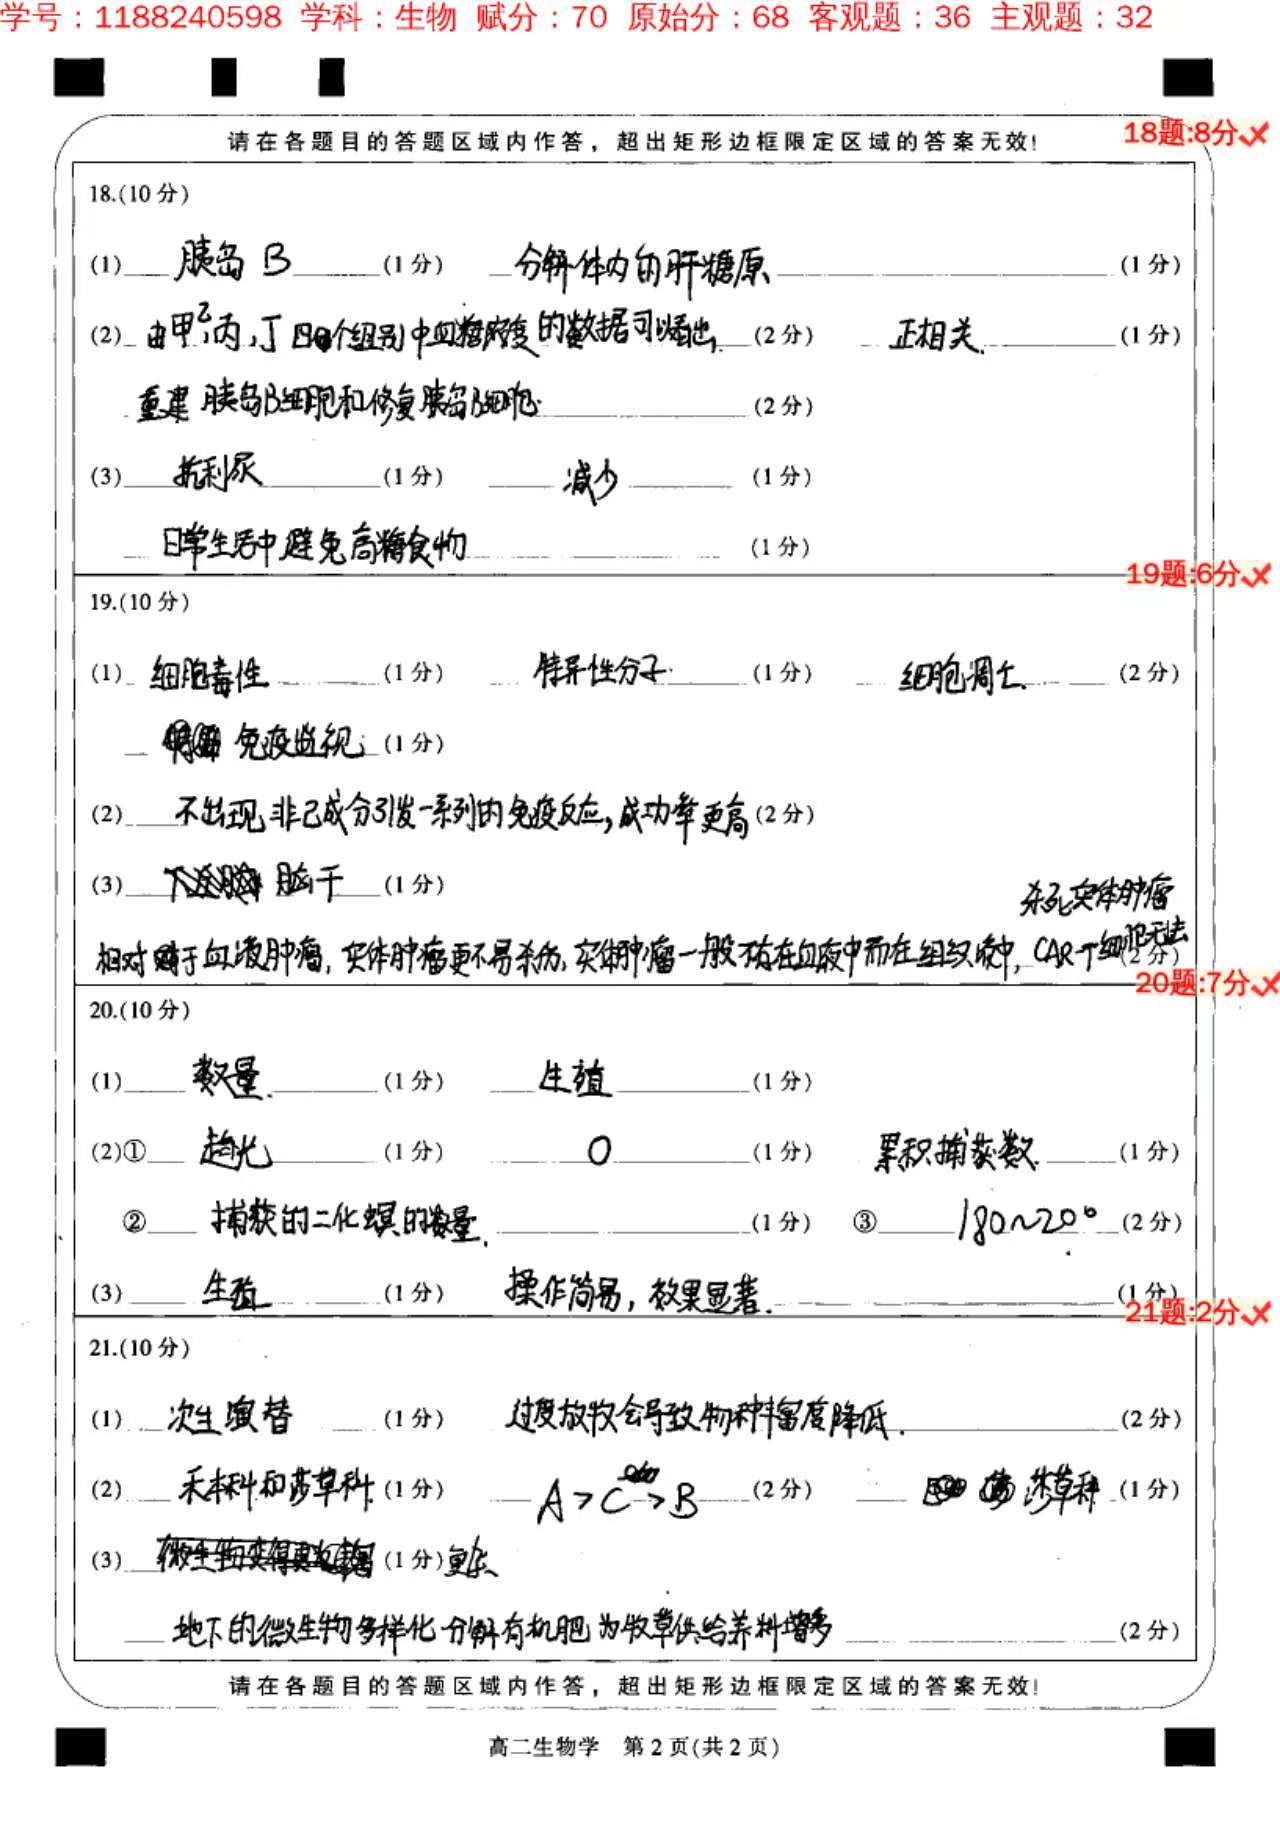 学号：1188240598 学科：生物 赋分：70 原始分：68 客观题：36 主观题：32
请在各题目的答题区域内作答，超出矩形边框限定区域的答案无效！
18题:8分
18.(10 分)
(1) 胰岛 B (1 分) 分解体内的肝糖原 (1 分)
(2) 由甲,乙,丙,丁四个组别中血糖浓度的数据可以看出, (2 分) 正相关. (1 分)
重建胰岛B细胞和修复胰岛B细胞 (2 分)
(3) 抗利尿 (1 分) 减少 (1 分)
日常生活中避免高糖食物 (1 分)
19题:6分
19.(10 分)
(1) 细胞毒性 (1 分) 特异性分子 (1 分) 细胞凋亡. (2 分)
免疫监视 (1 分)
(2) 不出现非己成分引发一系列的免疫反应,成功率更高 (2 分)
(3) 脑干 (1 分)
相对于血液肿瘤,实体肿瘤更不易杀伤,实体肿瘤一般不存在血液中而在组织液中, CAR-T细胞无法杀死实体肿瘤 (2 分)
20题:7分
20.(10 分)
(1) 数量. (1 分) 生殖 (1 分)
(2)① 趋光 (1 分) 0 (1 分) 累积捕获数. (1 分)
② 捕获的二化螟的数量. (1 分) ③ 180~200 (2 分)
(3) 生殖 (1 分) 操作简易, 效果显著. (1 分)
21题:2分
21.(10 分)
(1) 次生演替 (1 分) 过度放牧会导致物种丰富度降低. (2 分)
(2) 禾本科和莎草科 (1 分) A>C>B (2 分) 莎草科 (1 分)
(3) (1 分)
地下的微生物多样化分解有机肥为牧草供给养料增多 (2 分)
请在各题目的答题区域内作答，超出矩形边框限定区域的答案无效！
高二生物学 第 2 页(共 2 页)